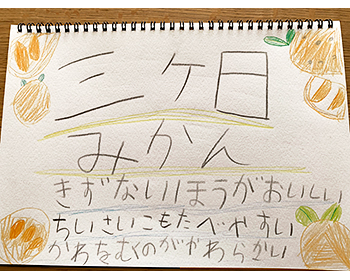 三ケ日
みかん
きずないほうがおいしい
ちいさいこもたべやすい
かわをむくのがやわらかい